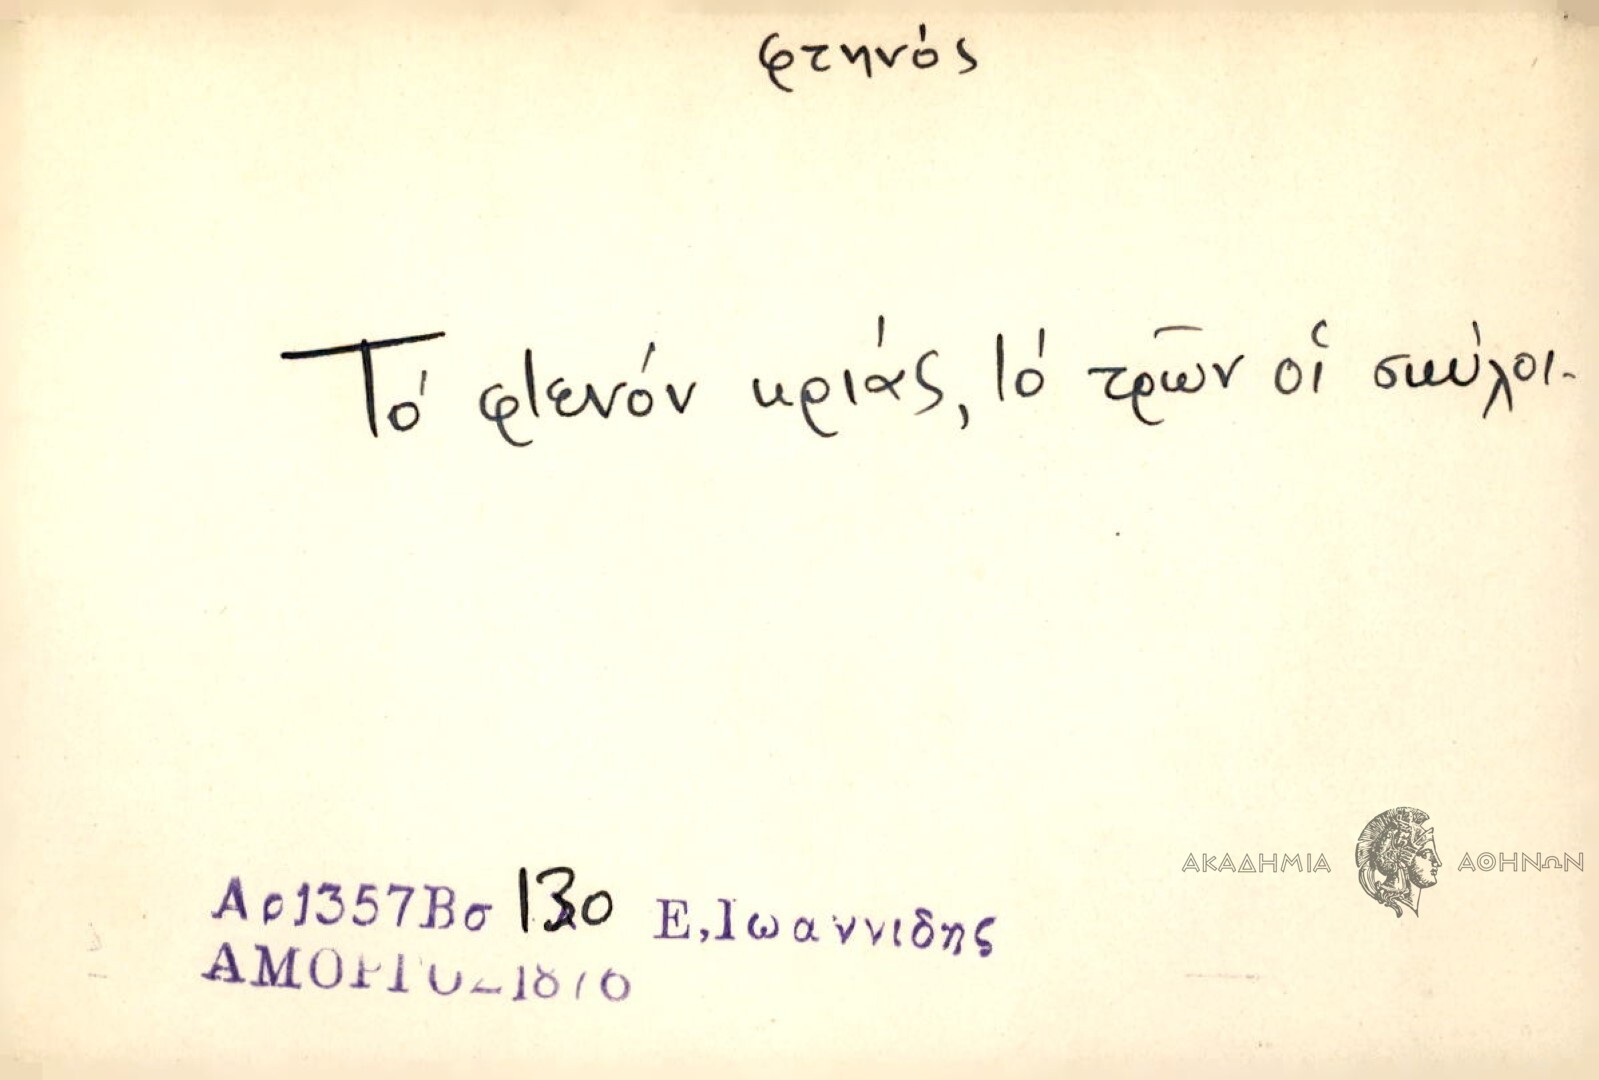 φτηνός
Τό φτενόν κριάς, τό τρῶν οἱ σκύλοι.
Αρ1357Βσ 130 Ε,Ιωαννιδης
ΑΜΟΡΓΟΣ 1876
ΑΚΑΔΗΜΙΑ ΑΘΗΝΩΝ